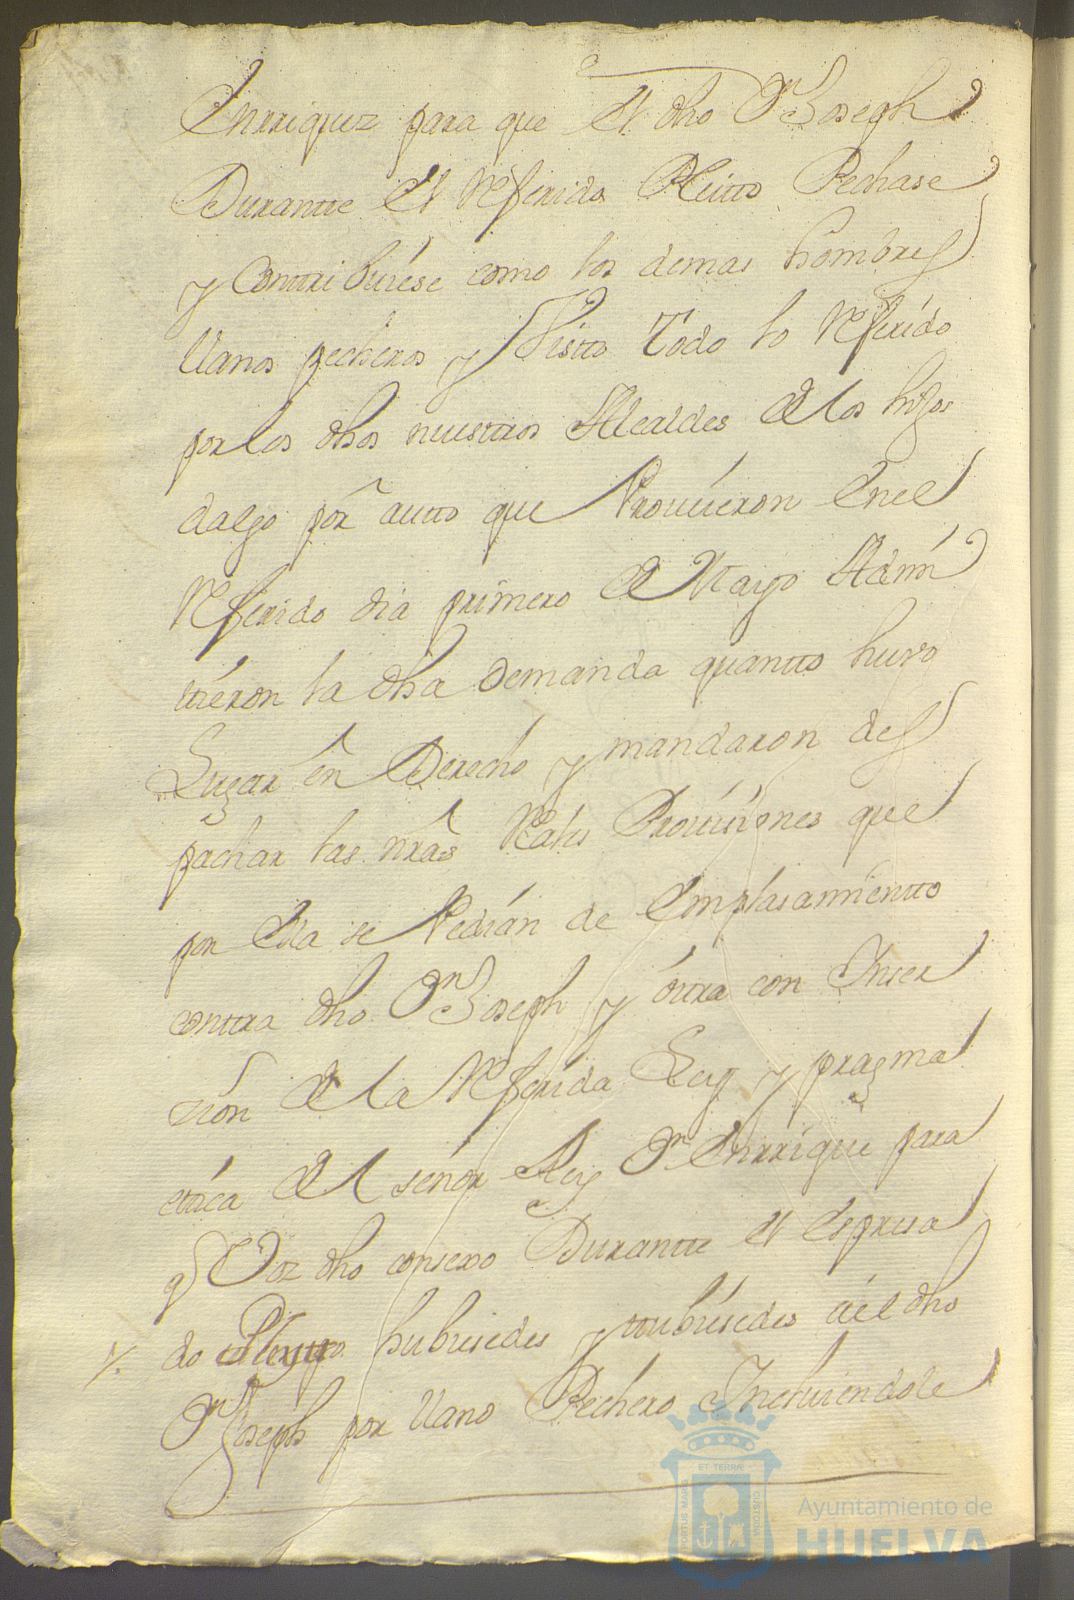 Enrriquez para que El dho Dn Joseph
Durante El Referido Pleitto Pechase
y Conttribuiese como los demas hombres
llanos pecheros y Vistto Todo lo Referido
por los dhos nuesttros Alcaldes de los hijos
dalgo por autto que Proveieron Enel
Referido dia primero de Mayo Admi
ttieron la dha Demanda quantto huvo
Lugar en Derecho y mandaron des
pachar las nrãs Reales Provisiones que
por Ella se Pedian de Emplasamientto
conttra dho Dn Joseph y ottra con Inser
cion de la Referida Ley y pragma
ttica del señor Rey Dn Enrrique para
q Voz dho consexo Durantte el Espresa
do Pleytto hubiesedes y ttubiesedes ael dho
Dn Joseph por llano Pechero Incluiendole
ET TERRÆ
PORTUS MARIS
CUSTODIA
Ayuntamiento de
HUELVA